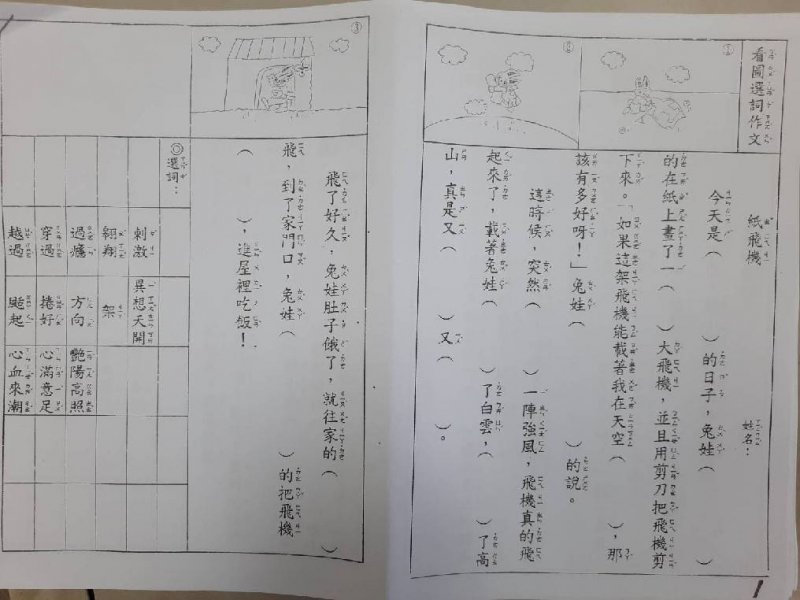 看圖選詞作文
紙飛機
姓名:
①
②
今天是( )的日子,兔娃( )
的在紙上畫了一( )大飛機,並且用剪刀把飛機剪
下來。「如果這架飛機能載著我在天空( ),那
該有多好呀!」兔娃( )的說。
這時候,突然( )一陣強風,飛機真的飛
起來了,載著兔娃( )了白雲,( )了高
山,真是又( )又( )。
③
飛了好久,兔娃肚子餓了,就往家的( )
飛,到了家門口,兔娃( )的把飛機
( ),進屋裡吃飯!
◎選詞:
刺激 異想天開
翱翔 架
過癮 方向 艷陽高照
穿過 捲好 心滿意足
越過 颳起 心血來潮
1